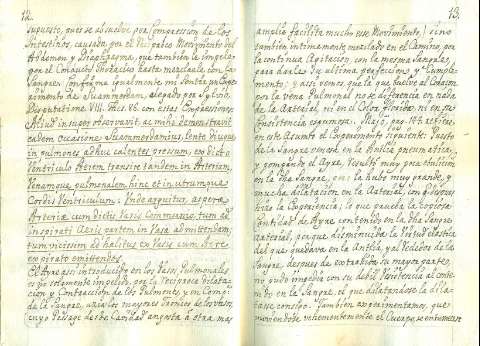 12.
supuesto, pues se absuelve por Compression de los
Intestinos, causada por el Reciproco Movimiento del
Abdomen y Diaphragma, que tambien la impele
por el Conducto Thoracico hasta mezclarla con la
Sangre; Confirma igualmente mi sentir el Expe-
rimento de Suammerdam, alegado por Sylvio,
Disputatione VIII. Nº 46. con estas Expressiones:
Aliud insuper observavit, ac mihi demonstravit
eadem occasione Suammerdamius, lente Divque
in pulmones adhuc calentes pressum, ex dicto
Ventriculo Aërem transire tandem in Arteriam,
Venamque pulmonalem, hinc et in utrumque
Cordis Ventriculum: Unde arguitur, asperæ
Arteriæ cum dictis Vasis Commune, tum ad
inspirati Aeris partem in Vasa admittendam;
tum vicissim ad halitus ex Vasis cum Aere
expirato emittendos.
El Ayre assi introducido en los Vasos Pulmonales
es no solamente impelido por la reciproca Dilata-
cion y Contraccion de los Pulmones, y en Comp.
de la Sangre, azia los mayores Troncos de los vasos,
cuyo Passage desde Cavidad angosta á otra mas
13.
amplia facilita mucho esse Movimiento,) sino
tambien intimamente mezclado en el Camino, por
la continua Agitacion, con la mesma Sangre
para darle su ultima perfeccion, y Cumple-
mento; y assi vemos, que la que buelve al Corazon
por la vena Pulmonal no se diferencia en nada
de la Arterial, ni en el Color florido, ni en su
Consistencia espumosa. Mayo, pag. 148. refiere
en este Assunto el Experimento siguiente: Puesto
de la Sangre venosa en la Machina pneumatica,
y pompando el Ayre, resultó muy poca ebulicion
en la dha Sangre, pero la hubo muy grande, y
mucha dilatacion en la Arterial, con quien se
hizo la Experiencia; lo que prueba la Copiosa
Cantidad de Ayre contenido en la dha Sangre
arterial, porque, disminuida la Virtud elastica
del que quedava en la Antlia, y al rededor de la
Sangre, despues de extrahida su mayor parte,
no pudo impedir con su debil Resistencia al conte-
nido en la Sangre, el que dilatandose la dila-
tasse consigo. Tambien experimentamos, que
moviendose vehementemente el Cuerpo, se entumesse